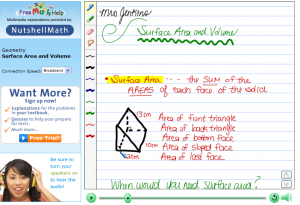 Free Math Help
Multimedia explanations provided by
NutshellMath
Geometry
Surface Area and Volume
Connection Speed: Broadband
Want More?
Sign up now!
Explanations for the problems in your textbook.
Quizzes to help your prepare for tests.
Much more...
Free Trial!
Be sure to
turn your
speakers on
to hear the
audio!
Mrs Jenkins
Surface Area and Volume
Surface Area --- the SUM of the
AREAS of each face of the solid.
13cm
10cm
Area of front triangle
Area of back triangle
Area of bottom face
Area of sloped face
Area of last face
When would you need surface area?